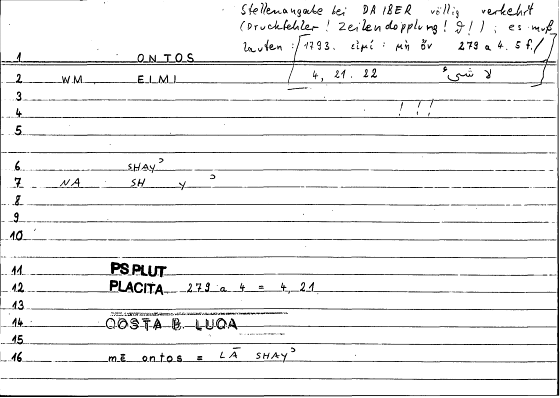 Stellenangabe bei DAIBER völlig verkehrt
(Druckfehler! Zeilendopplung! ϑ!); es muß
lauten: 1793. εἰμί: μὴ ὄν 279 a 4. 5 f./
1 ONTOS
2 WM EIMI 4, 21. 22 لا شىء
3
4 ! ! !
5
6 SHAYʾ
7 NA SH Y ʾ
8
9
10
11 PS PLUT
12 PLACITA 279 a 4 = 4, 21
13
14 QOSTA B. LUQA
15
16 mē ontos = LĀ SHAYʾ